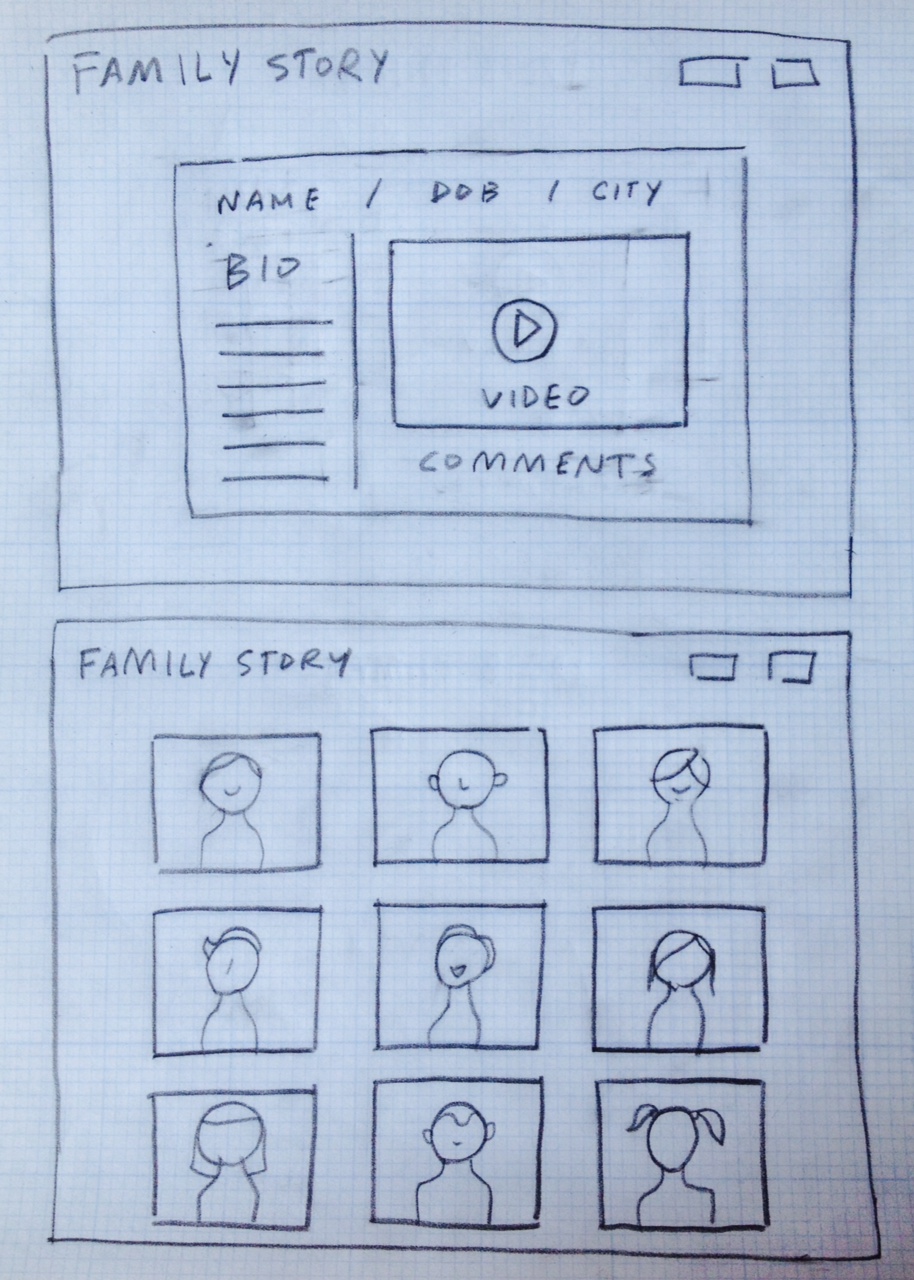 FAMILY STORY
NAME / DOB / CITY
BIO
VIDEO
COMMENTS
FAMILY STORY